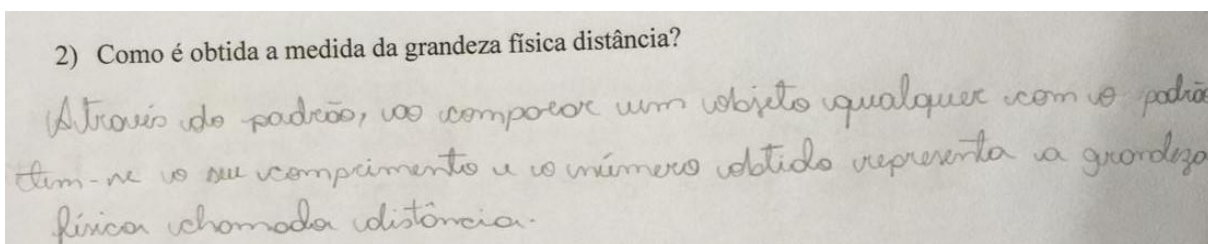 2) Como é obtida a medida da grandeza física distância?
Através do padrão, ao comparar um objeto qualquer com o padrão
tem-se o seu comprimento e o número obtido representa a grandeza
física chamada distância.